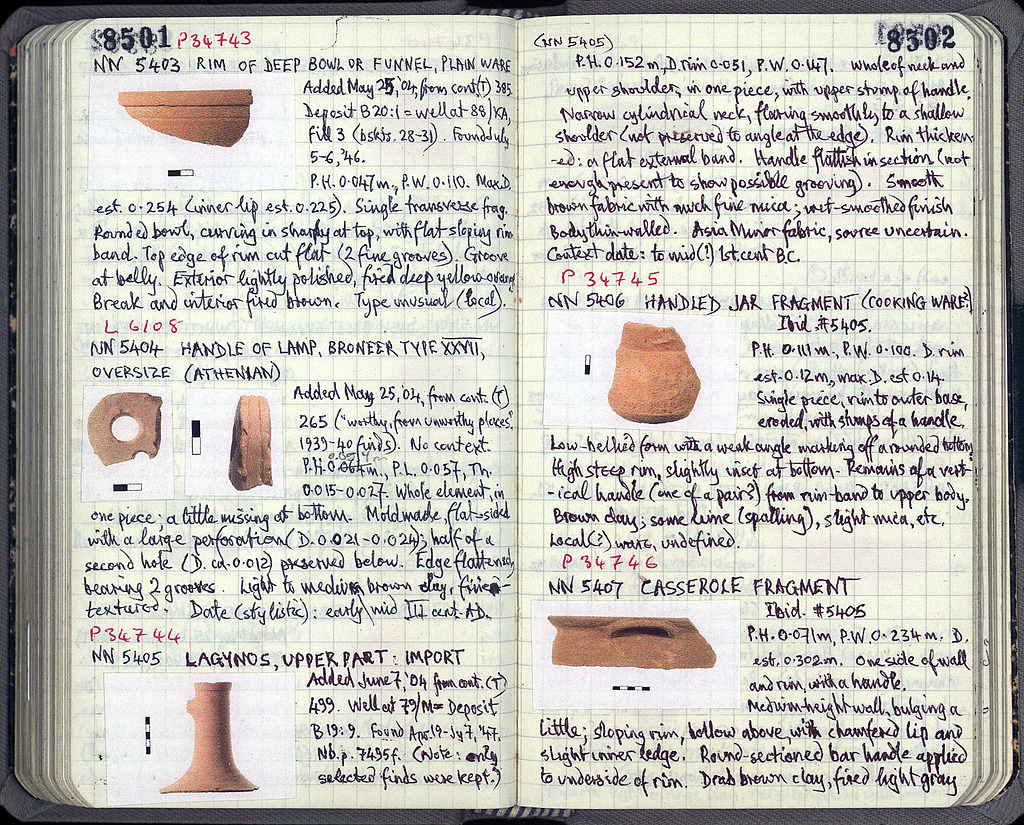 8501 P 34743
NN 5403 RIM OF DEEP BOWL OR FUNNEL, PLAIN WARE
Added May 25, '04, from cont. (T) 385
Deposit B 20:1 = well at 88/KA,
Fill 3 (bskts. 28-31). Found July
5-6, '46.
P.H. 0.047 m., P.W. 0.110. Max. D.
est. 0.254 (inner lip est. 0.225). Single transverse frag.
Rounded bowl, curving in sharply at top, with flat sloping rim
band. Top edge of rim cut flat (2 fine grooves). Groove
at belly. Exterior lightly polished, fired deep yellow-orange
Break and interior fired brown. Type unusual (local).
L 6108
NN 5404 HANDLE OF LAMP, BRONEER TYPE XXVII,
OVERSIZE (ATHENIAN)
Added May 25, '04, from cont. (T)
265 ("worthy, from unworthy places",
1939-40 finds). No context.
P.H. m., P.L. 0.057, Th.
0.015-0.027. Whole element, in
one piece; a little missing at bottom. Moldmade, flat-sided
with a large perforation (D. 0.021-0.024); half of a
second hole (D. ca. 0.012) preserved below. Edge flattened,
bearing 2 grooves. Light to medium brown clay, fine-
textured. Date (stylistic): early/mid III cent. A.D.
P 34744
NN 5405 LAGYNOS, UPPER PART: IMPORT
Added June 7, '04 from cont. (T)
499. Well at 79/M = Deposit
B 19:9. Found Apr. 19-Jy 7, '47.
Nb. p. 7495f. (Note: only
selected finds were kept.)
8502
(NN 5405)
P.H. 0.152 m, D. rim 0.051, P.W. 0.147. Whole of neck and
upper shoulder, in one piece, with upper stump of handle.
Narrow cylindrical neck, flaring smoothly to a shallow
shoulder (not preserved to angle at the edge). Rim thicken-
-ed: a flat external band. Handle flattish in section (not
enough present to show possible grooving). Smooth
brown fabric with much fine mica; wet-smoothed finish
Body thin-walled. Asia Minor fabric, source uncertain.
Context date: to mid(?) 1st. cent B.C.
P 34745
NN 5406 HANDLED JAR FRAGMENT (COOKING WARE?)
Ibid. #5405.
P.H. 0.111 m., P.W. 0.100. D. rim
est. 0.12 m, max. D. est 0.14
Single piece, rim to outer base,
eroded, with stumps of a handle.
Low-bellied form with a weak angle marking off a rounded bottom
High steep rim, slightly inset at bottom. Remains of a vert-
-ical handle (one of a pair?) from rim-band to upper body.
Brown clay; some lime (spalling), slight mica, etc.
Local(?) ware, undefined.
P 34746
NN 5407 CASSEROLE FRAGMENT
Ibid. #5405
P.H. 0.071m, P.W. 0.234 m. D.
est. 0.302 m. One side of wall
and rim, with a handle.
Medium-height wall, bulging a
little; sloping rim, hollow above with chamfered lip and
slight inner ledge. Round-sectioned bar handle applied
to underside of rim. Drab brown clay, fired light gray